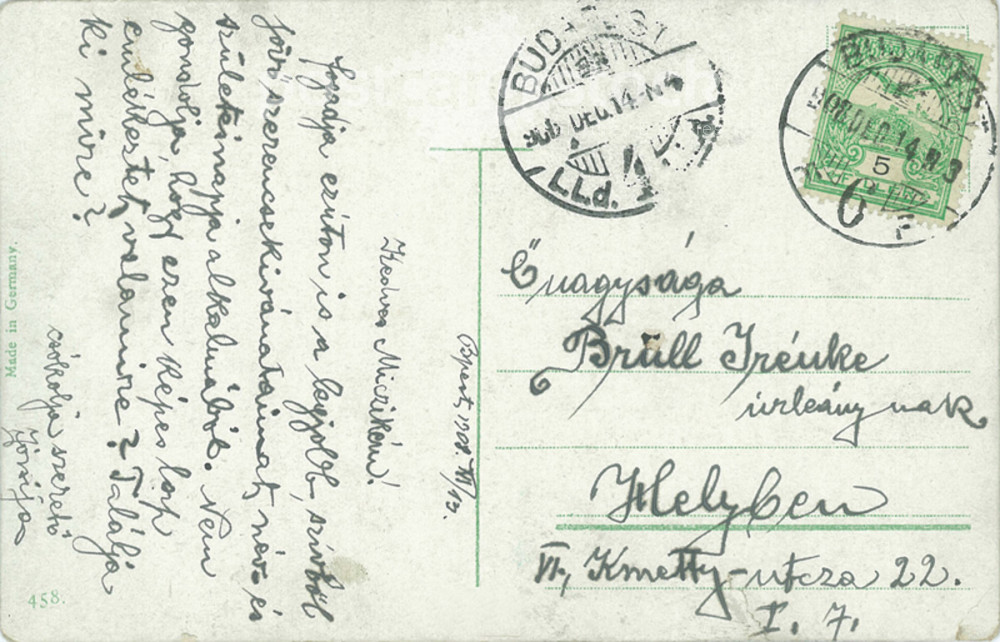 Bpest, 908. XII/13.
Kedves Miczikém!
Fogadja ezúton is a legjobb, szívből
jövő szerencsekívánataimat, név- és
születésnapja alkalmából. Nem
gondolja, hogy ezen képes lap
emlékezteti valamire? Találja
ki mire?
csókolja szerető
Made in Germany.
458.
BUDAPEST
908 DEC. 14. N. 4
BUDAPEST
908 DEC. 14. N. 3
5
Őnagysága
Brüll Irénke
úrleánynak
Helyben
VI., Kmetty-utcza 22.
I. 7.